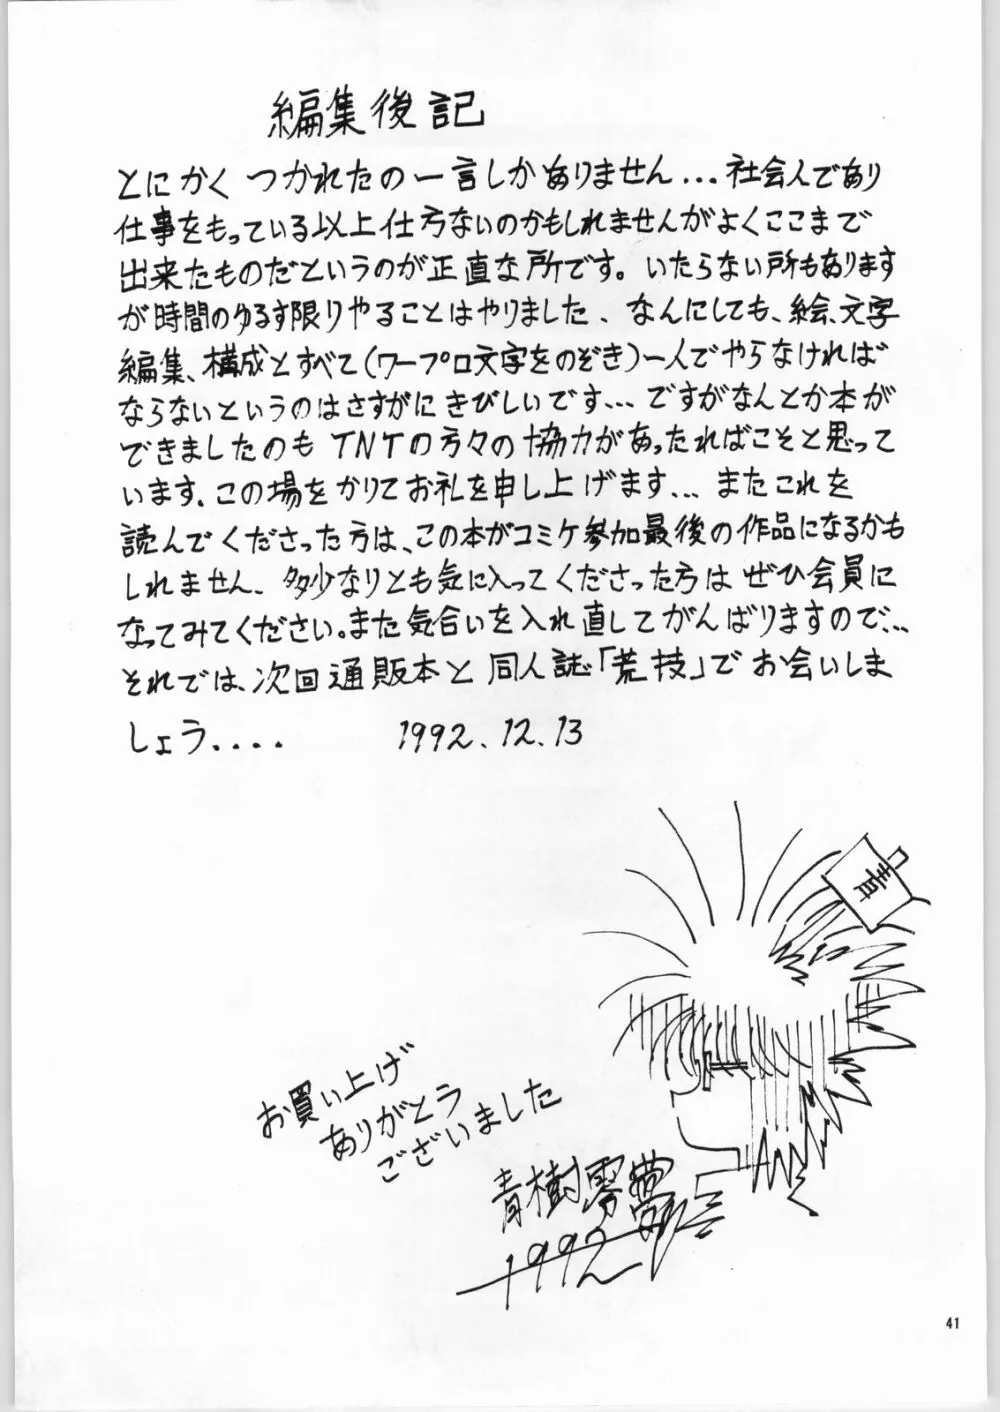 編集後記
とにかく つかれたの一言しかありません...社会人であり
仕事をもっている以上仕方ないのかもしれませんがよくここまで
出来たものだというのが正直な所です。いたらない所もあります
が時間のゆるす限りやることはやりました、なんにしても、絵、文字
編集、構成とすべて(ワープロ文字をのぞき)一人でやらなければ
ならないというのはさすがにきびしいです...ですがなんとか本が
できましたのもTNTの方々の協力があったればこそと思って
います.この場をかりてお礼を申し上げます...またこれを
読んでくださった方は、この本がコミケ参加最後の作品になるかも
しれません、多少なりとも気に入ってくださった方は ぜひ会員に
なってみてください。また気合いを入れ直してがんばりますので、...
それでは、次回通販本と 同人誌「荒技」でお会いしま
しょう.... 1992.12.13
青
お買い上げ
ありがとう
ございました
青樹零夢
1992
41